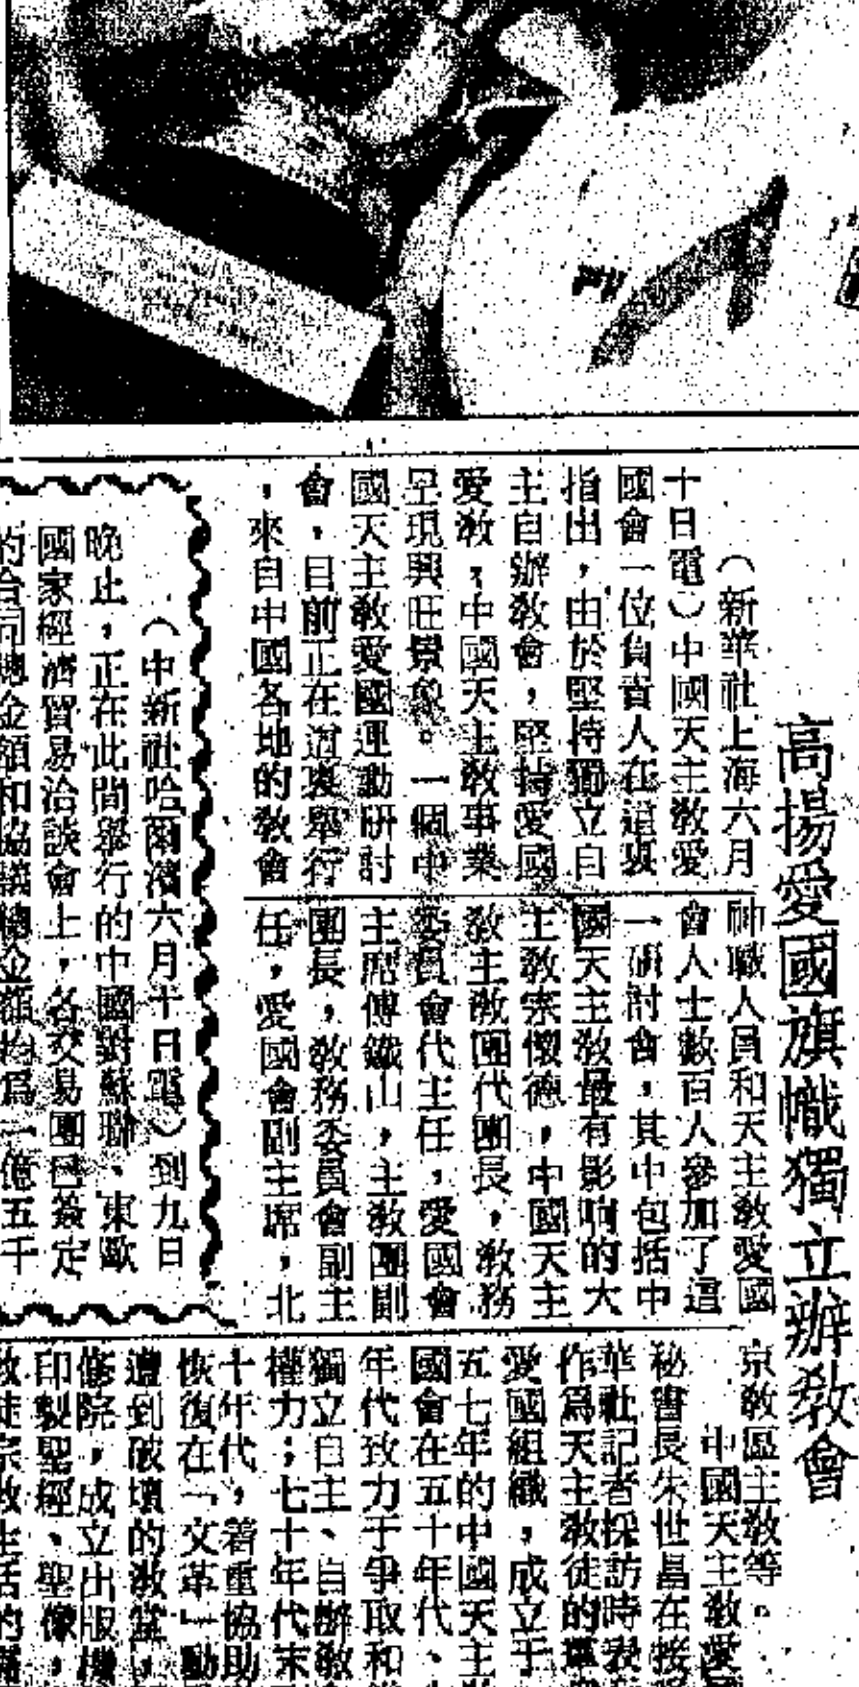 高揚愛國旗幟獨立辦教會
（新華社上海六月
十日電）中國天主教愛
國會一位負責人在這裏
指出，由於堅持獨立自
主自辦教會，堅持愛國
愛教，中國天主教事業
呈現興旺景象。一個中
國天主教愛國運動研討
會，目前正在這裏舉行
，來自中國各地的教會
神職人員和天主教愛國
會人士數百人參加了這
一研討會，其中包括中
國天主教最有影响的大
主教宗懷德，中國天主
教主教團代團長，教務
委員會代主任，愛國會
主席傅鐵山，主教團副
團長，教務委員會副主
任，愛國會副主席，北
京教區主教等。
中國天主教愛
秘書長朱世昌在接
華社記者採訪時表
作爲天主教徒的
愛國組織，成立于
五七年的中國天主
國會在五十年代、
年代致力于爭取和
獨立自主、自辦教
權力；七十年代末
十年代，着重協助
恢復在「文革」動
遭到破壞的教堂，
修院，成立出版機
印製聖經、聖像，
教徒宗教生活的
（中新社哈爾濱六月十日電）到九日
晚止，正在此間舉行的中國對蘇聯、東歐
國家經濟貿易洽談會上，各交易團已簽定
的合同總金額和協議總金額均爲一億五千